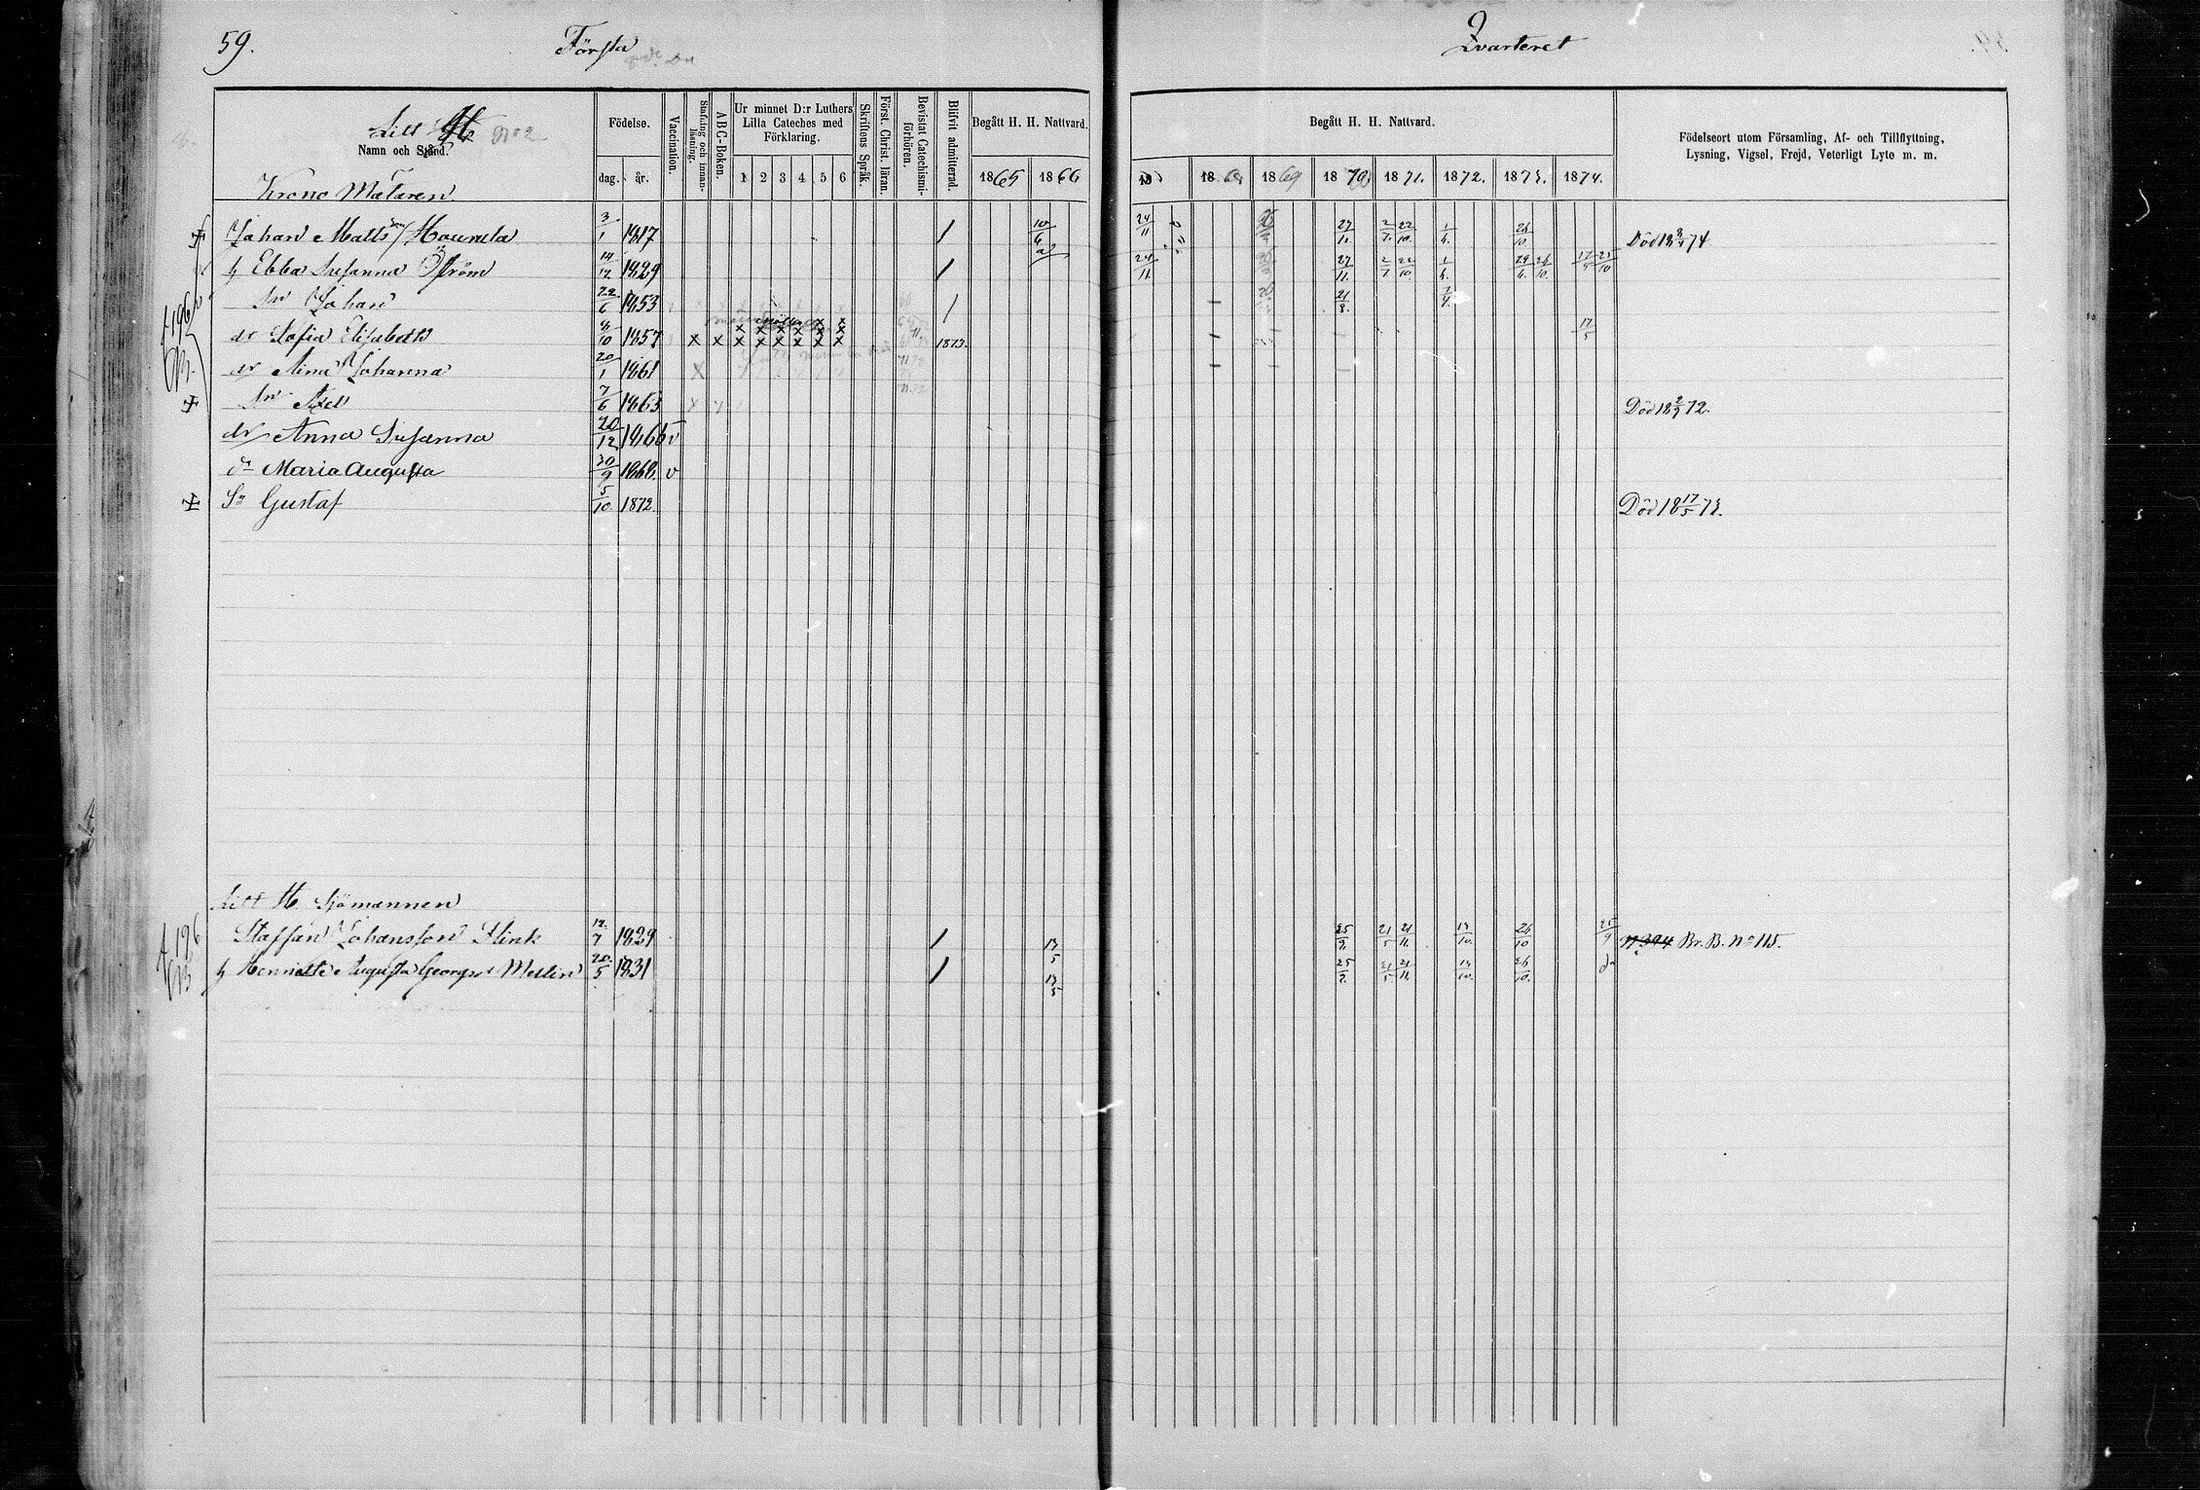 59.
Första
Qvarteret
Litt
No 2
Namn och Stånd.
Födelse.
dag.
år.
Vaccination.
Stafning och innan-läsning.
ABC-Boken.
Ur minnet D:r Luthers
Lilla Cateches med
Förklaring.
1 2 3 4 5 6
Skriftens Språk.
Först. Christ. läran.
Bevistat Catechismi-förhören.
Blifvit admitterad.
Begått H. H. Nattvard.
1865 1866
Begått H. H. Nattvard.
18 1869 1870 1871. 1872. 1873. 1874.
Födelseort utom Församling, Af- och Tillflyttning,
Lysning, Vigsel, Frejd, Veterligt Lyte m. m.
Krono Mätaren
Johan Mattsson 3/1 1817 / 24/11 27/11 2/7 22/10 26/10 Död 18 74
h Ebba Susanna Öström 1829 / 24/11 27/11 2/7 22/10 17/5 25/10
Sn Johan 22/6 1853 /
dr Sofia Elisabeth 1857 x x x x x x x x 1873. 17/5
dr Aina Johanna 20/1 1861 x
Sn Axel 7/6 1863 Död 18 2/9 72.
dr Anna Susanna 20/12 1866 v
dr Maria Augusta 30/9 1868. v
Sn Gustaf 5/10 1872. Död 18 17/5 73.
Litt H. Sjömannen
Staffan Johansson Flink 12/7 1829 / 13/5 25/9 21/5 21/11 13/10 26/10 25/9 Br. B. No 115.
h Henriette Augusta Georgsdr Mellin 20/5 1831 / 13/5 25/9 21/5 21/11 13/10 26/10 do